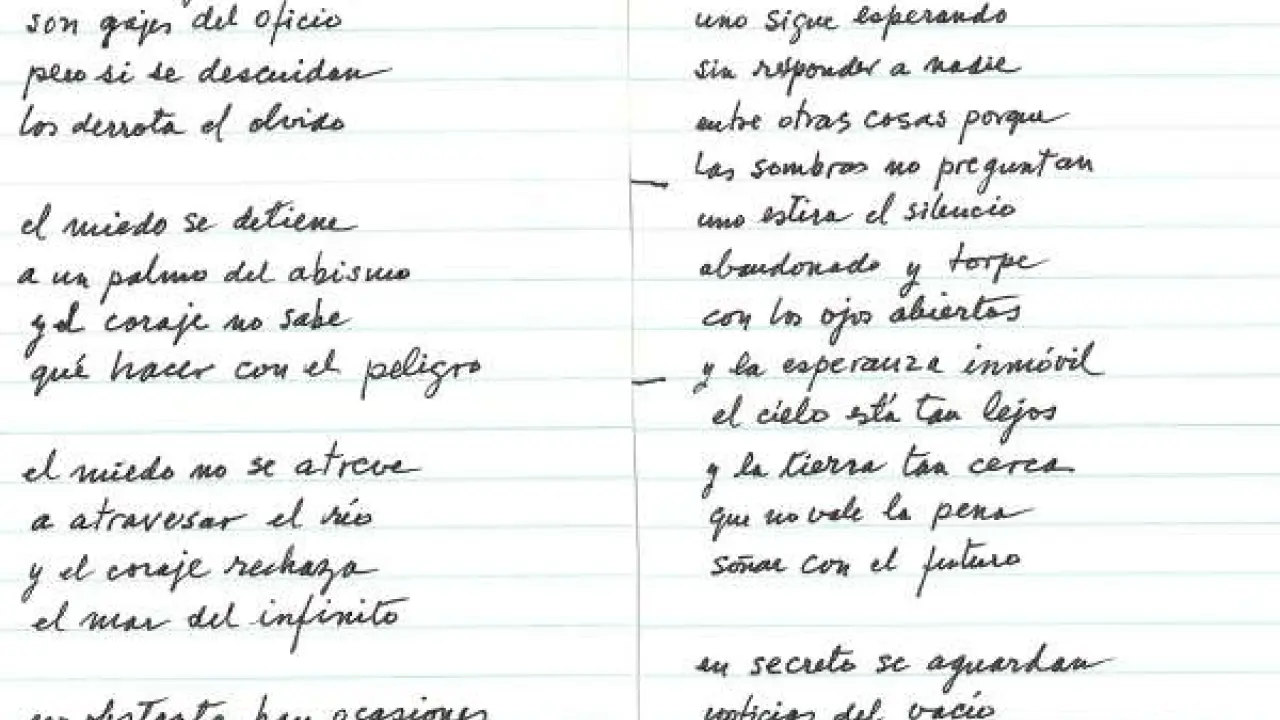 son gajes del oficio
pero si se descuidan
los derrota el olvido
el miedo se detiene
a un palmo del abismo
y el coraje no sabe
qué hacer con el peligro
el miedo no se atreve
a atravesar el río
y el coraje rechaza
el mar del infinito
no obstante hay ocasiones
uno sigue esperando
sin responder a nadie
entre otras cosas porque
las sombras no preguntan
uno estira el silencio
abandonado y torpe
con los ojos abiertos
y la esperanza inmóvil
el cielo está tan lejos
y la tierra tan cerca
que no vale la pena
soñar con el futuro
en secreto se aguardan
noticias del vacío